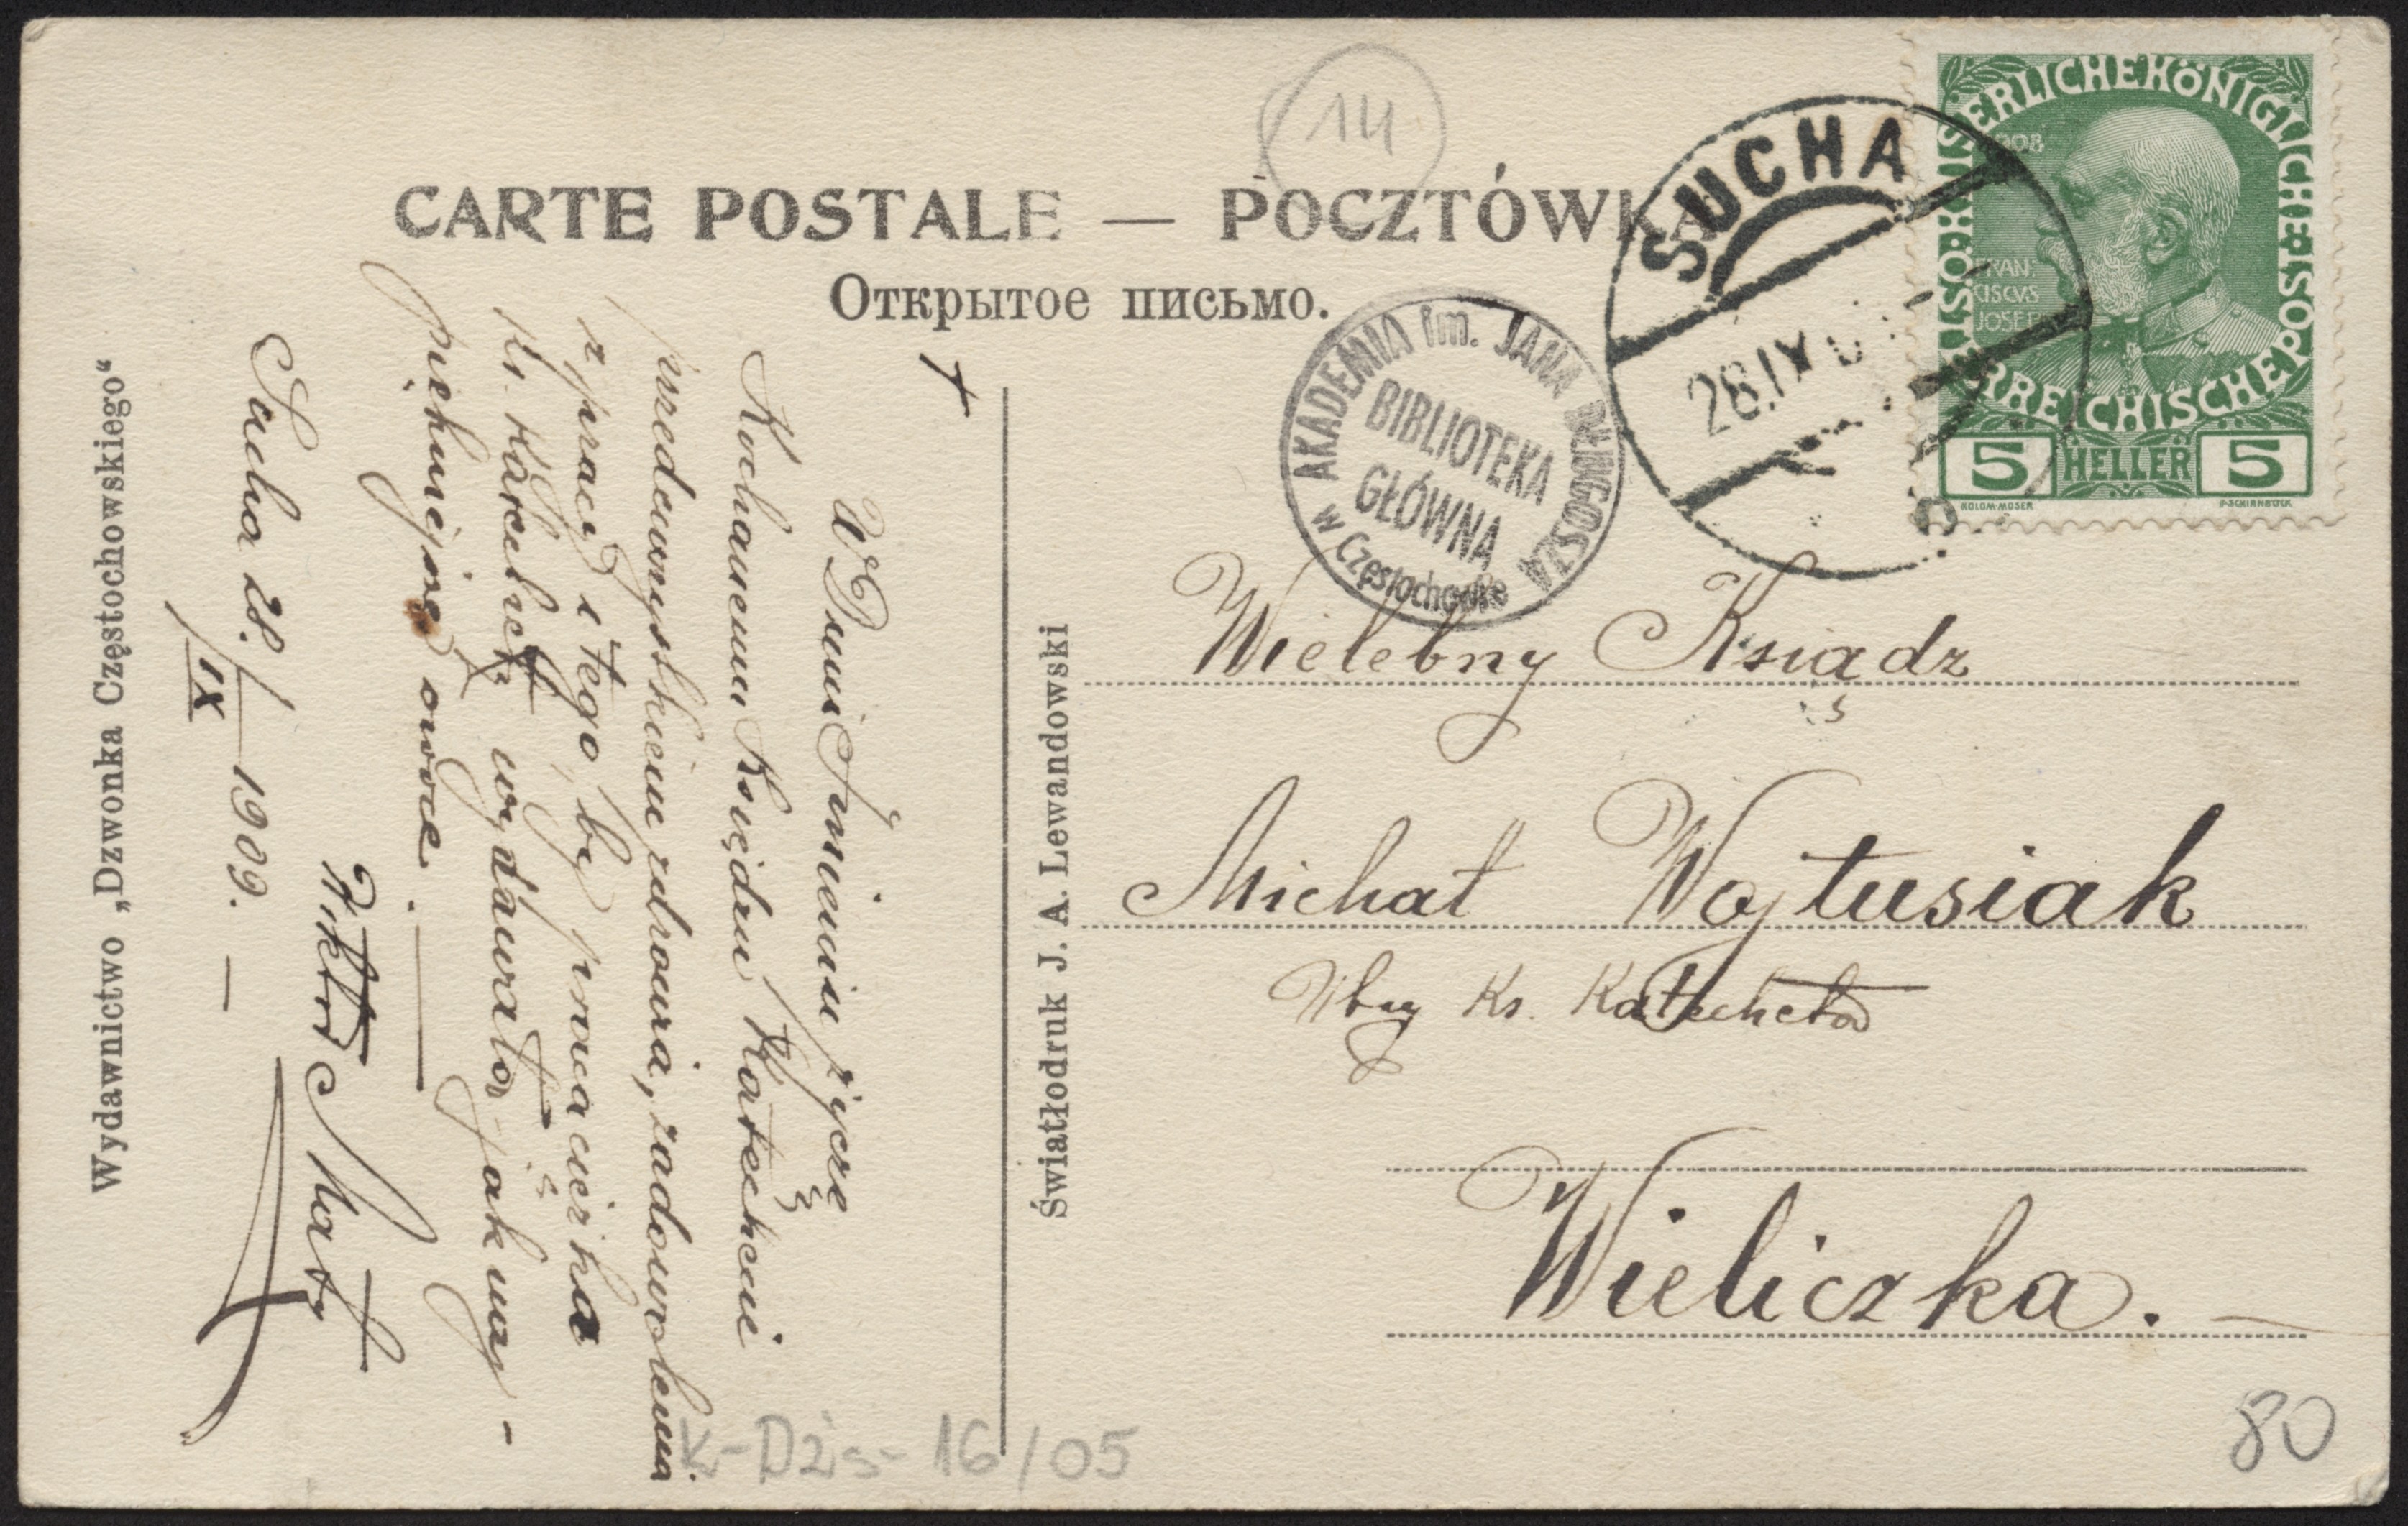 14
CARTE POSTALE — POCZTÓWKA
Открытое письмо.
SUCHA
28.IX
KAISERLICHE KÖNIGLICHE ÖSTERREICHISCHE POST
1908
FRAN:
CISCVS
JOSEF I
5 HELLER 5
KOLOM·MOSER
F·SCHIRNBÖCK
AKADEMIA im. JANA DŁUGOSZA
BIBLIOTEKA
GŁÓWNA
w Częstochowie
Wielebny Ksiądz
Michał Wojtusiak
Wbny Ks. Katecheta
Wieliczka.
80
Światłodruk J. A. Lewandowski
+
W Dniu Imienin życzę
Kochanemu Księdzu Katechecie
przedewszystkiem zdrowia, zadowolenia
z pracy i tego, by praca
Ks. wydawała jak naj-
piękniejsze owoce.
Wiktor
Sucha 28./IX 1909. —
Wydawnictwo „Dzwonka Częstochowskiego“
K-Dżs-16/05